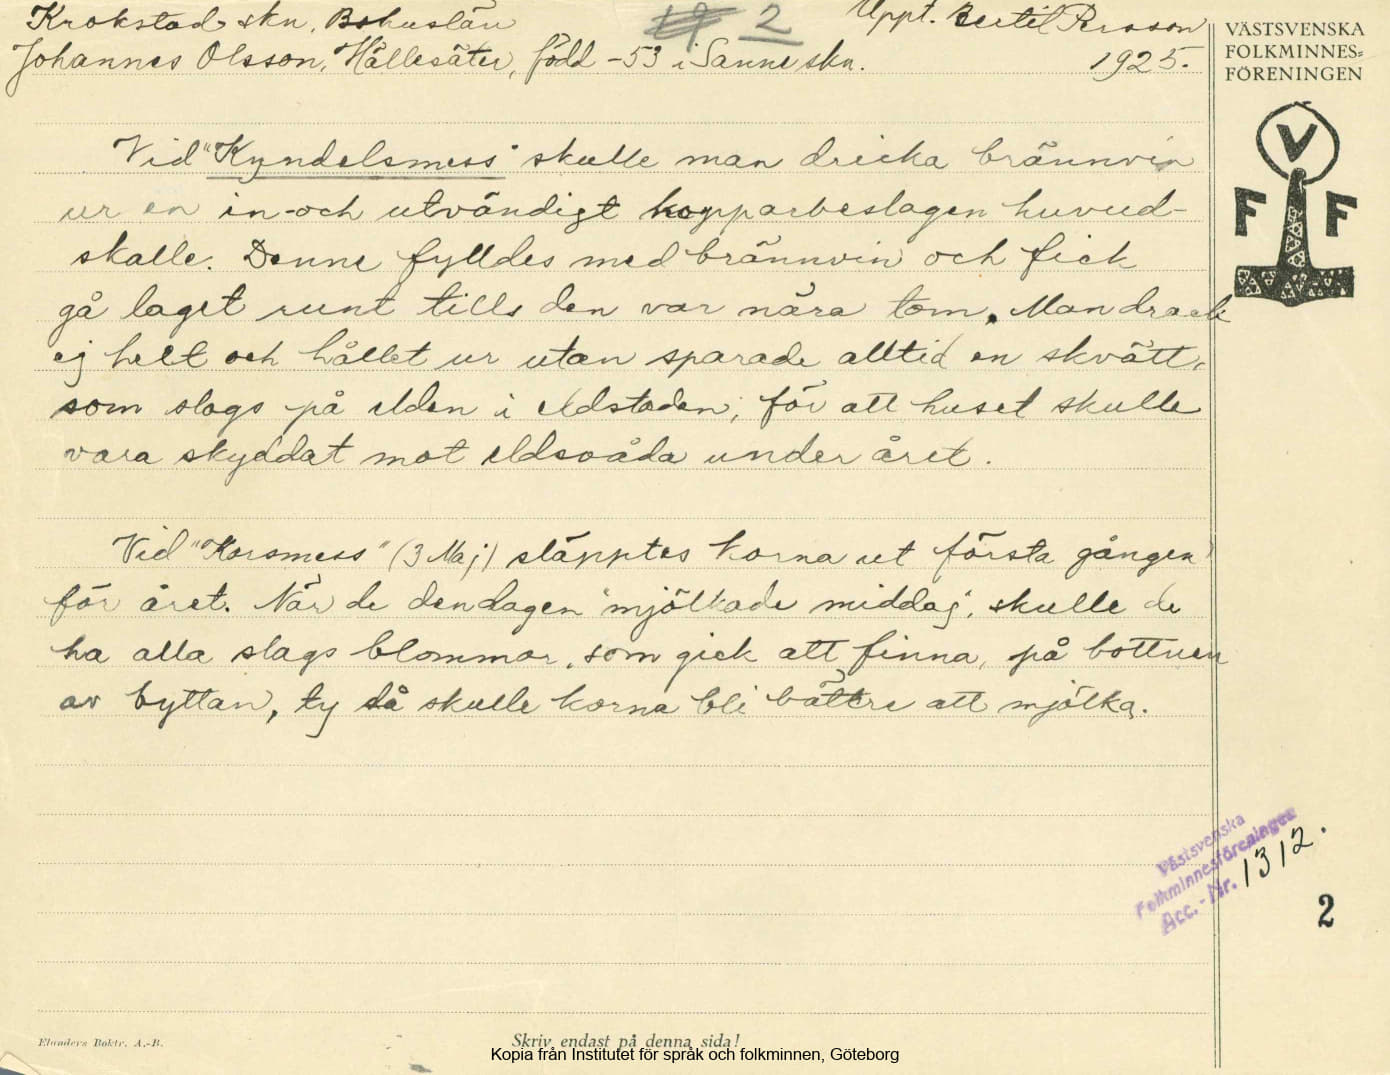 Krokstad skn, Bohuslän
2
Uppt. Bertil Persson
Johannes Olsson, Hällesäter, född -53 i Sanne skn.
1925.
VÄSTSVENSKA
FOLKMINNES=
FÖRENINGEN
V
F F
Vid "Kyndelsmess" skulle man dricka brännvin
ur en in-och utvändigt kopparbeslagen huvud-
skalle. Denne fylldes med brännvin och fick
gå laget runt tills den var nära tom. Man drack
ej helt och hållet ur utan sparade alltid en skvätt,
som slogs på elden i eldstaden, för att huset skulle
vara skyddat mot eldsvåda under året.
Vid "Korsmess" (3 Maj) släpptes korna ut första gången
för året. När de den dagen "mjölkade middag", skulle de
ha alla slags blommor, som gick att finna, på bottnen
av byttan, ty då skulle korna bli bättre att mjölka.
Västsvenska
Folkminnesföreningen
Acc.-Nr. 1312.
2
Elanders Boktr. A.-B.
Skriv endast på denna sida!
Kopia från Institutet för språk och folkminnen, Göteborg